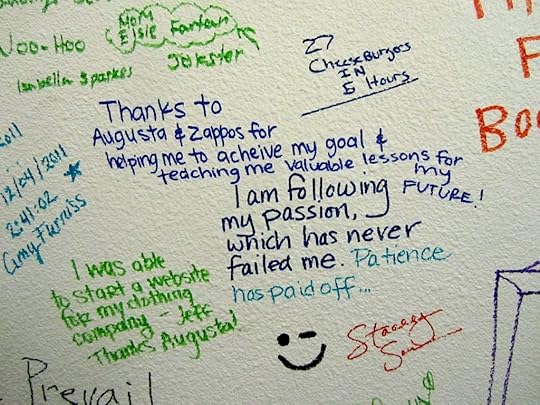 Woo-Hoo
Isabella Sparkes
Mom
Elsie Fantan
Jokster
27
CheeseBurgers
IN
5 Hours
Boo
2011
12/04/2011
2:41:02
Amy Furniss
Thanks to
Augusta & Zappos for
helping me to acheive my goal &
teaching me valuable lessons for
my
FUTURE!
I am following
my passion,
which has never
failed me. Patience
has paid off...
I was able
to start a website
for my clothing
company - Jeff
Thanks Augusta!
Stacey
Prevail